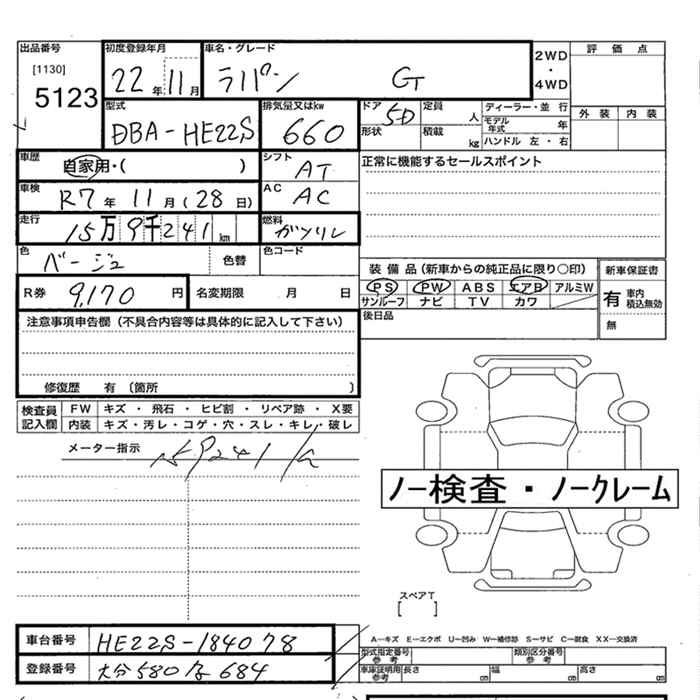 出品番号
[1130]
5123
初度登録年月
22年11月
車名・グレード
ラパン GT
2WD
・
4WD
評価点
外装 内装
型式
DBA-HE22S
排気量又はkw
660
ドア 5D
形状
定員 人
積載 kg
ディーラー・並行
モデル年式 年
ハンドル 左・右
車歴
自家用・( )
シフト
AT
正常に機能するセールスポイント
車検
R7年11月(28日)
AC
AC
走行
15万9千241km
燃料
ガソリン
色
ベージュ
色替
色コード
装備品(新車からの純正品に限り○印)
PS PW ABS エアB アルミW
サンルーフ ナビ TV カワ
新車保証書
有 車内積込無効
無
R券 9,170円
名変期限 月 日
後日品
注意事項申告欄(不具合内容等は具体的に記入して下さい)
修復歴 有 〔箇所 〕
検査員記入欄
FW キズ・飛石・ヒビ割・リペア跡・X要
内装 キズ・汚レ・コゲ・穴・スレ・キレ・破レ
メーター指示
ノー検査・ノークレーム
スペアT
[ ]
車台番号 HE22S-184078
登録番号 大分580 684
A―キズ E―エクボ U―凹み W―補修跡 S―サビ C―腐食 XX―交換済
型式指定番号 参考
類別区分番号 参考
車庫証明用 参考 長さ cm 幅 cm 高さ cm